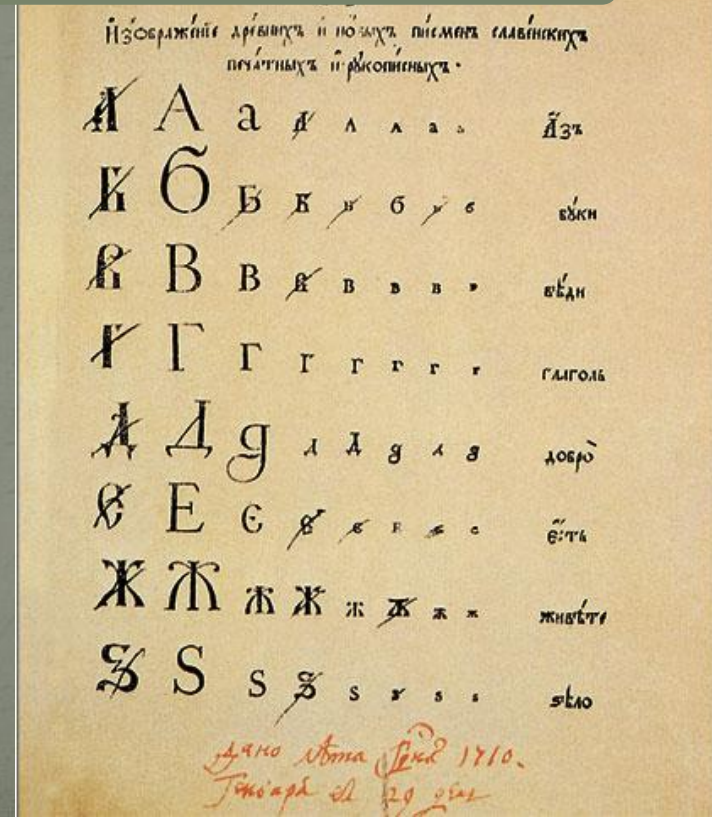 Изображенїе древнихъ и новыхъ писменъ славенскихъ
печатныхъ и рукописныхъ.
А А а А А А а а Азъ
Б Б Б Б Б б Б б буки
В В в В в в в в вѣди
Г Г г г г г г г глаголь
Д Д д д Д д д д добро
Е Е є є є е є є есть
Ж Ж ж ж ж ж ж ж живѣте
Ѕ Ѕ ѕ ѕ ѕ ѕ ѕ ѕ ѕѣло
Дано лѣта Гдня 1710.
Генваря въ 29 день